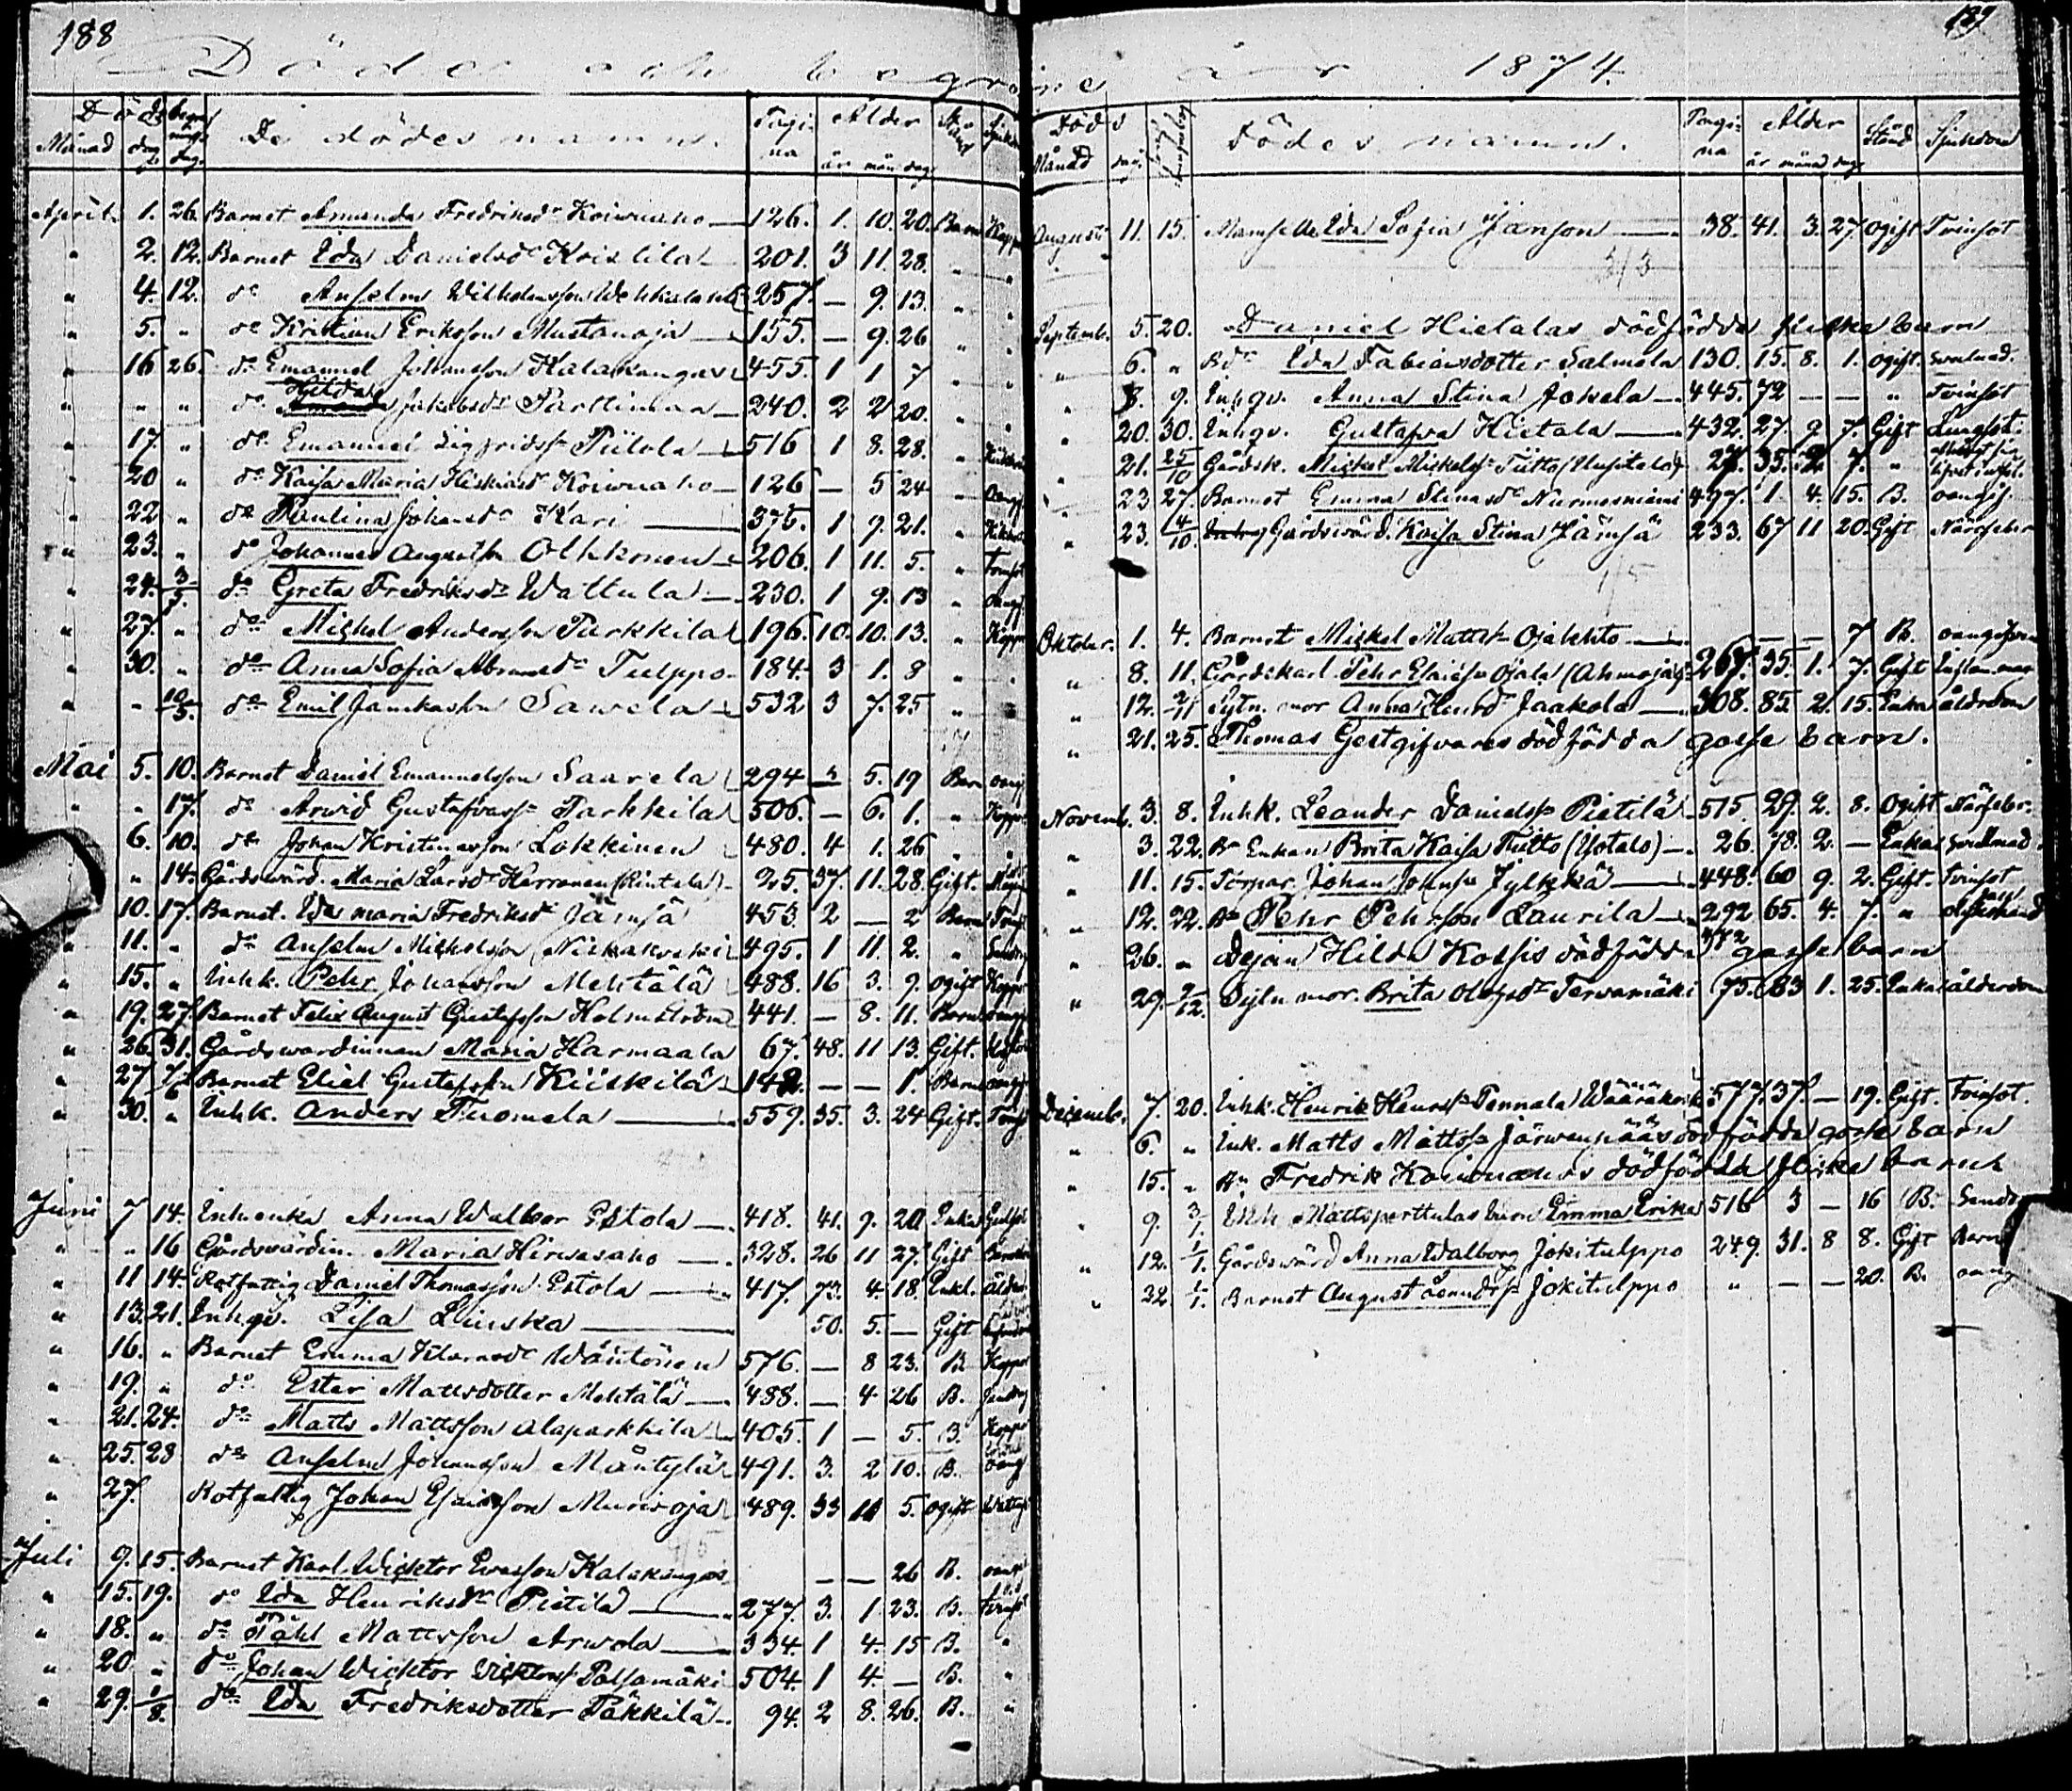 188
Döde och begrafne
Döde Månad dag begrafnings dag. De dödes namn. Pagina Ålder år mån dag Stånd Sjukdom
April. 1. 26. Barnet Amanda Fredriksdr Koiwuaho 126. 1. 10. 20. Barn Koppor
" 2. 12. Barnet Ida Danielsdr Kristila 201. 3 11. 28. " "
" 4. 12. do Anselm Wilhelmsson 257. — 9. 13. " "
" 5. " do Kristian Eriksson Mustanoja 155. — 9. 26 " "
" 16 26. do Emanuel Johansson Kalakangas 455. 1 1 7 " "
" " " do Hilda Jakobsdr Parttimaa 240. 2 2 20. " "
" 17. " do Emanuel Sigfridss. Piilola 516 1 8. 28. "
" 20 " do Kaisa Maria Koiwuaho 126 — 5 24 "
" 22 " do Paulina Johansdr Kari 376. 1 9. 21. "
" 23. " do Johannes Augustsson Olkkonen 206. 1 11. 5. "
" 24. 3/5. do Greta Fredriksdr Wattula 230. 1 9. 13 "
" 27. " do Mickel Andersson Parkkila 196. 10. 10. 13. " Koppor
" 30. " do Anna Sofia Tulppo 184. 3 1. 8 " "
" " 10/5. do Emil Sawela 532 3 7. 25 " "
Mai 5. 10. Barnet Daniel Emanuelsson Saarela 294 2 5. 19 Barn oang
" " 17. do Arvid Gustafvass. Parkkila 506. — 6. 1. " Koppor
" 6. 10. do Johan Lakkinen 480. 4 1. 26 " "
" " 14. Gårdsvärd. Maria Larsdr Herranen (Rintala) 25. 37. 11. 28. Gift.
" 10. 17. Barnet. Ida Maria Fredriksdr Jämsä 453 2 — 2 Barn
" 11. " do Anselm Mickelsson Niskakoski 495. 1 11. 2. "
" 15. " Inhk. Pehr Johansson Mehtälä 488. 16 3. 9. ogift Koppor
" 19. 27. Barnet Felix August Gustafsson Holmström 441. — 8. 11. Barn
" 26. 31. Gårdswärdinnan Maria Harmaala 67. 48. 11 13. Gift.
" 27 7/6 Barnet Eliel Gustafsson Kiiskilä 142. — — 1. Barn oang
" 30. " Inhk. Anders Tuomela 559. 35. 3. 24 Gift.
Juni 7 14. Inh.enka Anna Walbor Estola 418. 41. 9. 20 Enka
" " 16 Gårdswärdin. Maria Hirwasaho 328. 26 11 27. Gift
" 11 14. Rotfattig Daniel Thomasson Estola 417. 73. 4. 18. Enkl. ålder
" 13. 21. Inhqv. Lisa Linska 50. 5. — Gift
" 16. " Barnet Emma Wäntönen 576. — 8 23. B Koppor
" 19. " do Ester Mattsdotter Mehtälä 488. — 4 26 B.
" 21. 24. do Matts Mattsson Alaparkkila 405. 1 — 5. B. Koppor
" 25. 28 do Anselm Johansson Mäntylä 491. 3. 2 10. B. oang
" 27. Rotfattig Johan Esaiasson Murisoja 489. 33 11 5. ogift
Juli 9. 15. Barnet Karl Wicktor Ewasson Kalakangas — — 26 B.
" 15. 19. do Ida Henriksdr Pietilä 277. 3. 1 23. B.
" 18. " do Påhl Mattsson Arwola 334. 1 4. 15 B. "
" 20 " do Johan Wicktor Wicktorss. Palsamäki 504. 1 4. — B. "
" 29. 1/8. do Ida Fredriksdotter Päkkilä 94. 2 8. 26. B. "
189
år 1874.
Döds Månad dag. begrafnings dag Dödes namn. Pagina Ålder år månad dag Stånd Sjukdom
Augusti 11. 15. Mamsell Ida Sofia Janson 38. 41. 3. 27. ogift Tvinsot
Septemb. 5. 20. Daniel Hietalas dödfödda flicka barn
" 6. " Bdr Ida Fabiansdotter Salmela 130. 15. 8. 1. ogift.
" 8. 9. Inhqv. Anna Stina Jokela 445. 72 — — " Tvinsot
" 20. 30. Inhqv. Gustafva Hietala 432. 27 9 7. Gift Lungsot.
" 21. 25/10 Gårdsk. Mickel Mickelss. Tiitto (Uusitalo) 27. 35. 2 7. "
" 23 27. Barnet Emma Stinasdr Nurmesniemi 497. 1 4. 15. B. oangif.
" 23. 4/10. Gårdswärd. Kaisa Stina Jämsä 233. 67 11 20. Gift
Oktober. 1. 4. Barnet Mickel Mattss. Ojalehto — — 7 B. oangifven
" 8. 11. Gårdskarl Pehr Esaiass. Ojala (Ahmaoja) 267. 35. 1. 7. Gift
" 12. 2/11 Sytn. mor Anna Henrsdr Jaakola 308. 85 2. 15. Enka ålderdom
" 21. 25. Thomas Gestgifvares dödfödda gosse barn.
Novemb. 3. 8. Inhk. Leander Danielss. Pietilä 515. 29. 2. 8. Ogift
" 3. 22. Bn Enkan Brita Kaisa Tiitto (Ylitalo) 26. 78. 2. — Enka
" 11. 15. Torpar. Johan Johnss. Jylkkä 448. 60 9. 2. Gift. Tvinsot
" 12. 22. Bn Pehr Pehrsson Laurila 292 65. 4. 7. "
" 26. " Dejan Hilda Koskis dödfödda 372 gosse barn
" 29. 9/12. Sytn mor. Brita Olofsdr Terwamäki 75. 83 1. 25. Enka ålderdom
Decemb. 7. 20. Inhk. Henrik Henrss. Pennala (Wääräkoski 577. 37. — 19. Gift. Tvinsot.
" 6. " Ink. Matts Mattss. Järwenpääs dödfödda gosse barn
" 15. " Bn Fredrik Koiwuahos dödfödda flicka barn
" 9. 3/1. Inh. Matts perttulas barn Emma Erika 516 3 — 16 B.
" 12. 1/1. Gårdswärd Anna Walborg Jokitulppo 249. 31. 8 8. Gift Barn
" 22 1/1. Barnet August Jokitulppo " — — 20. B. oang